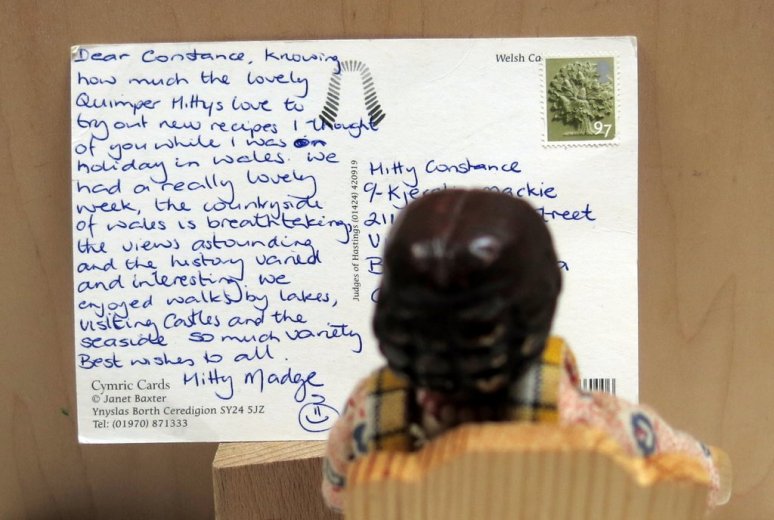 Dear Constance, Knowing
how much the lovely
Quimper Hittys love to
try out new recipes I thought
of you while I was on
holiday in wales. we
had a really lovely
week, the countryside
of wales is breathtaking,
the views astounding
and the history varied
and interesting we
enjoyed walks by lakes,
visiting Castles and the
seaside so much variety
Best wishes to all.
Hitty Madge
Cymric Cards
© Janet Baxter
Ynyslas Borth Ceredigion SY24 5JZ
Tel: (01970) 871333
Judges of Hastings (01424) 420919
Welsh
97
Hitty Constance
c/- Mackie
211 street